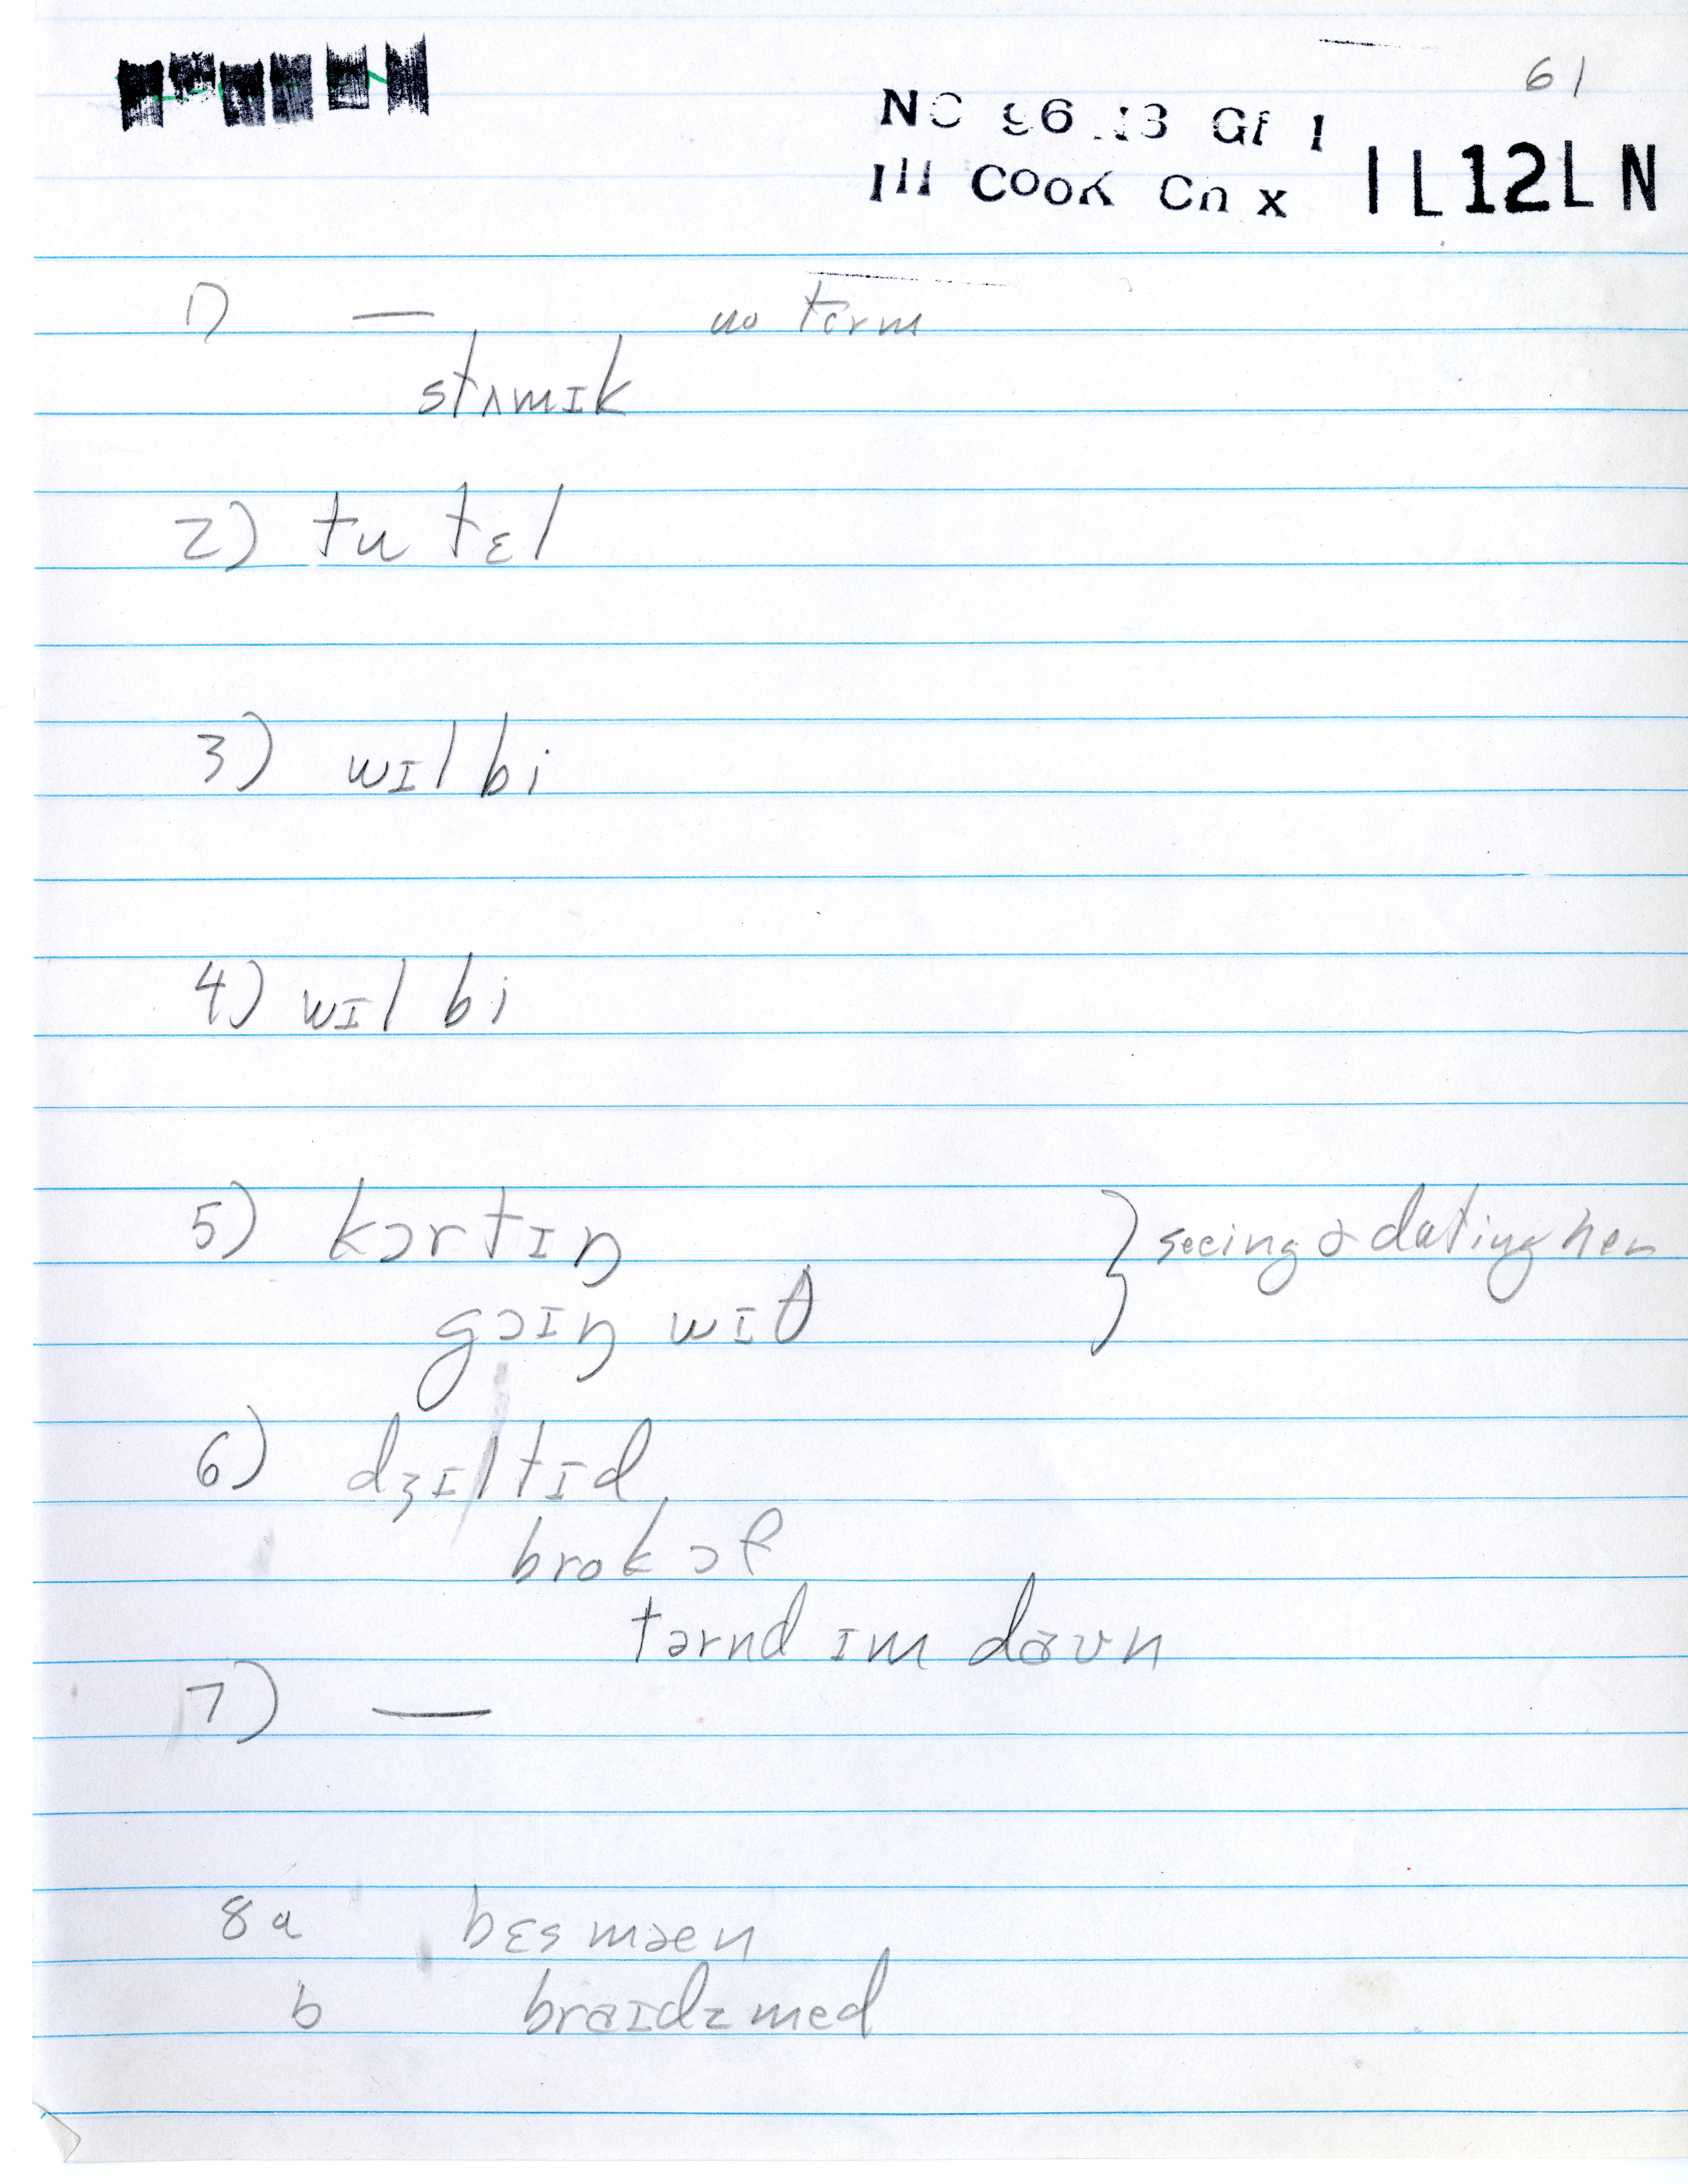 61
NC 96 Gr 1
Ill Cook Co x IL12LN
1) — no term
stʌmɪk
2) tu tɛl
3) wɪl bi
4) wɪl bi
5) kɔrtɪŋ } seeing & dating her
goɪŋ wɪθ
6) dʒɪltɪd
brok ɔf
tərnd ɪm daʊn
7) —
8a bɛs mæn
b braɪdzmed